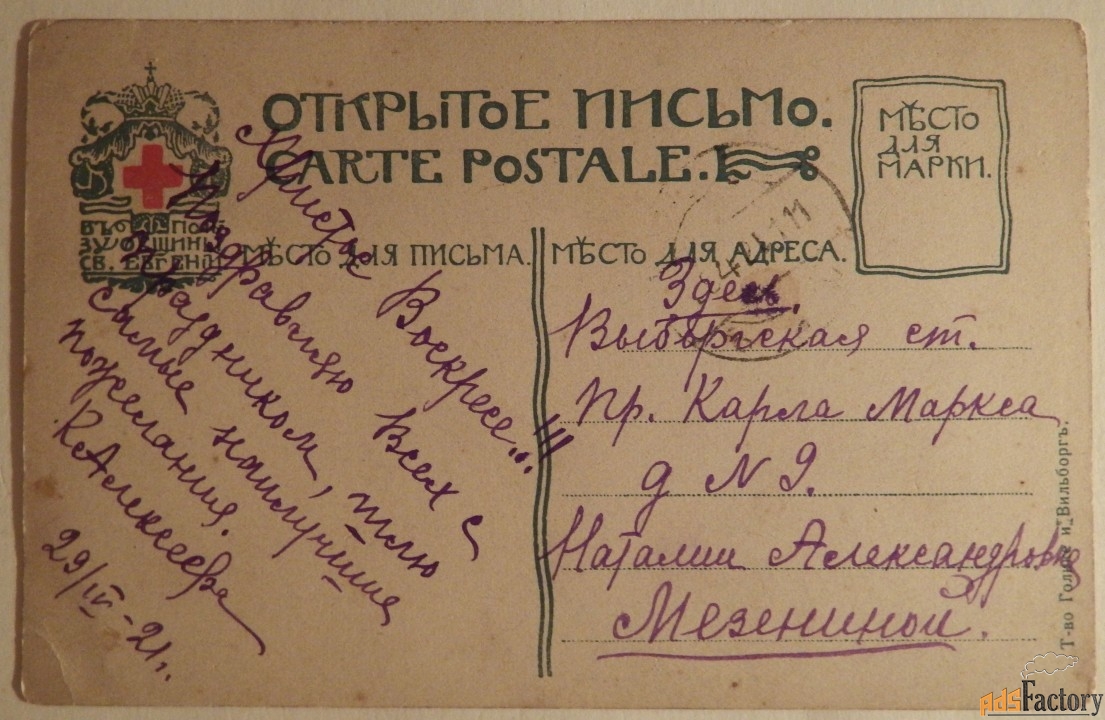 ОТКРЫТОЕ ПИСЬМО.
CARTE POSTALE.
МѢСТО
ДЛЯ
МАРКИ.
ВЪ ПОЛЬ
ЗУ ОБЩИНЫ
СВ. ЕВГЕНІИ
МѢСТО ДЛЯ ПИСЬМА.
МѢСТО ДЛЯ АДРЕСА.
Христос Воскресе...!!!
Поздравляю Всех с
праздником, шлю
самые наилучшие
пожелания.
КАлексеева
29/IV-21.
Здесь.
Выборгская ст.
Пр. Карла Маркса
д N 9.
Наталии Александровне
Мезениной.
Т-во Голике и Вильборгъ.
adsFactory